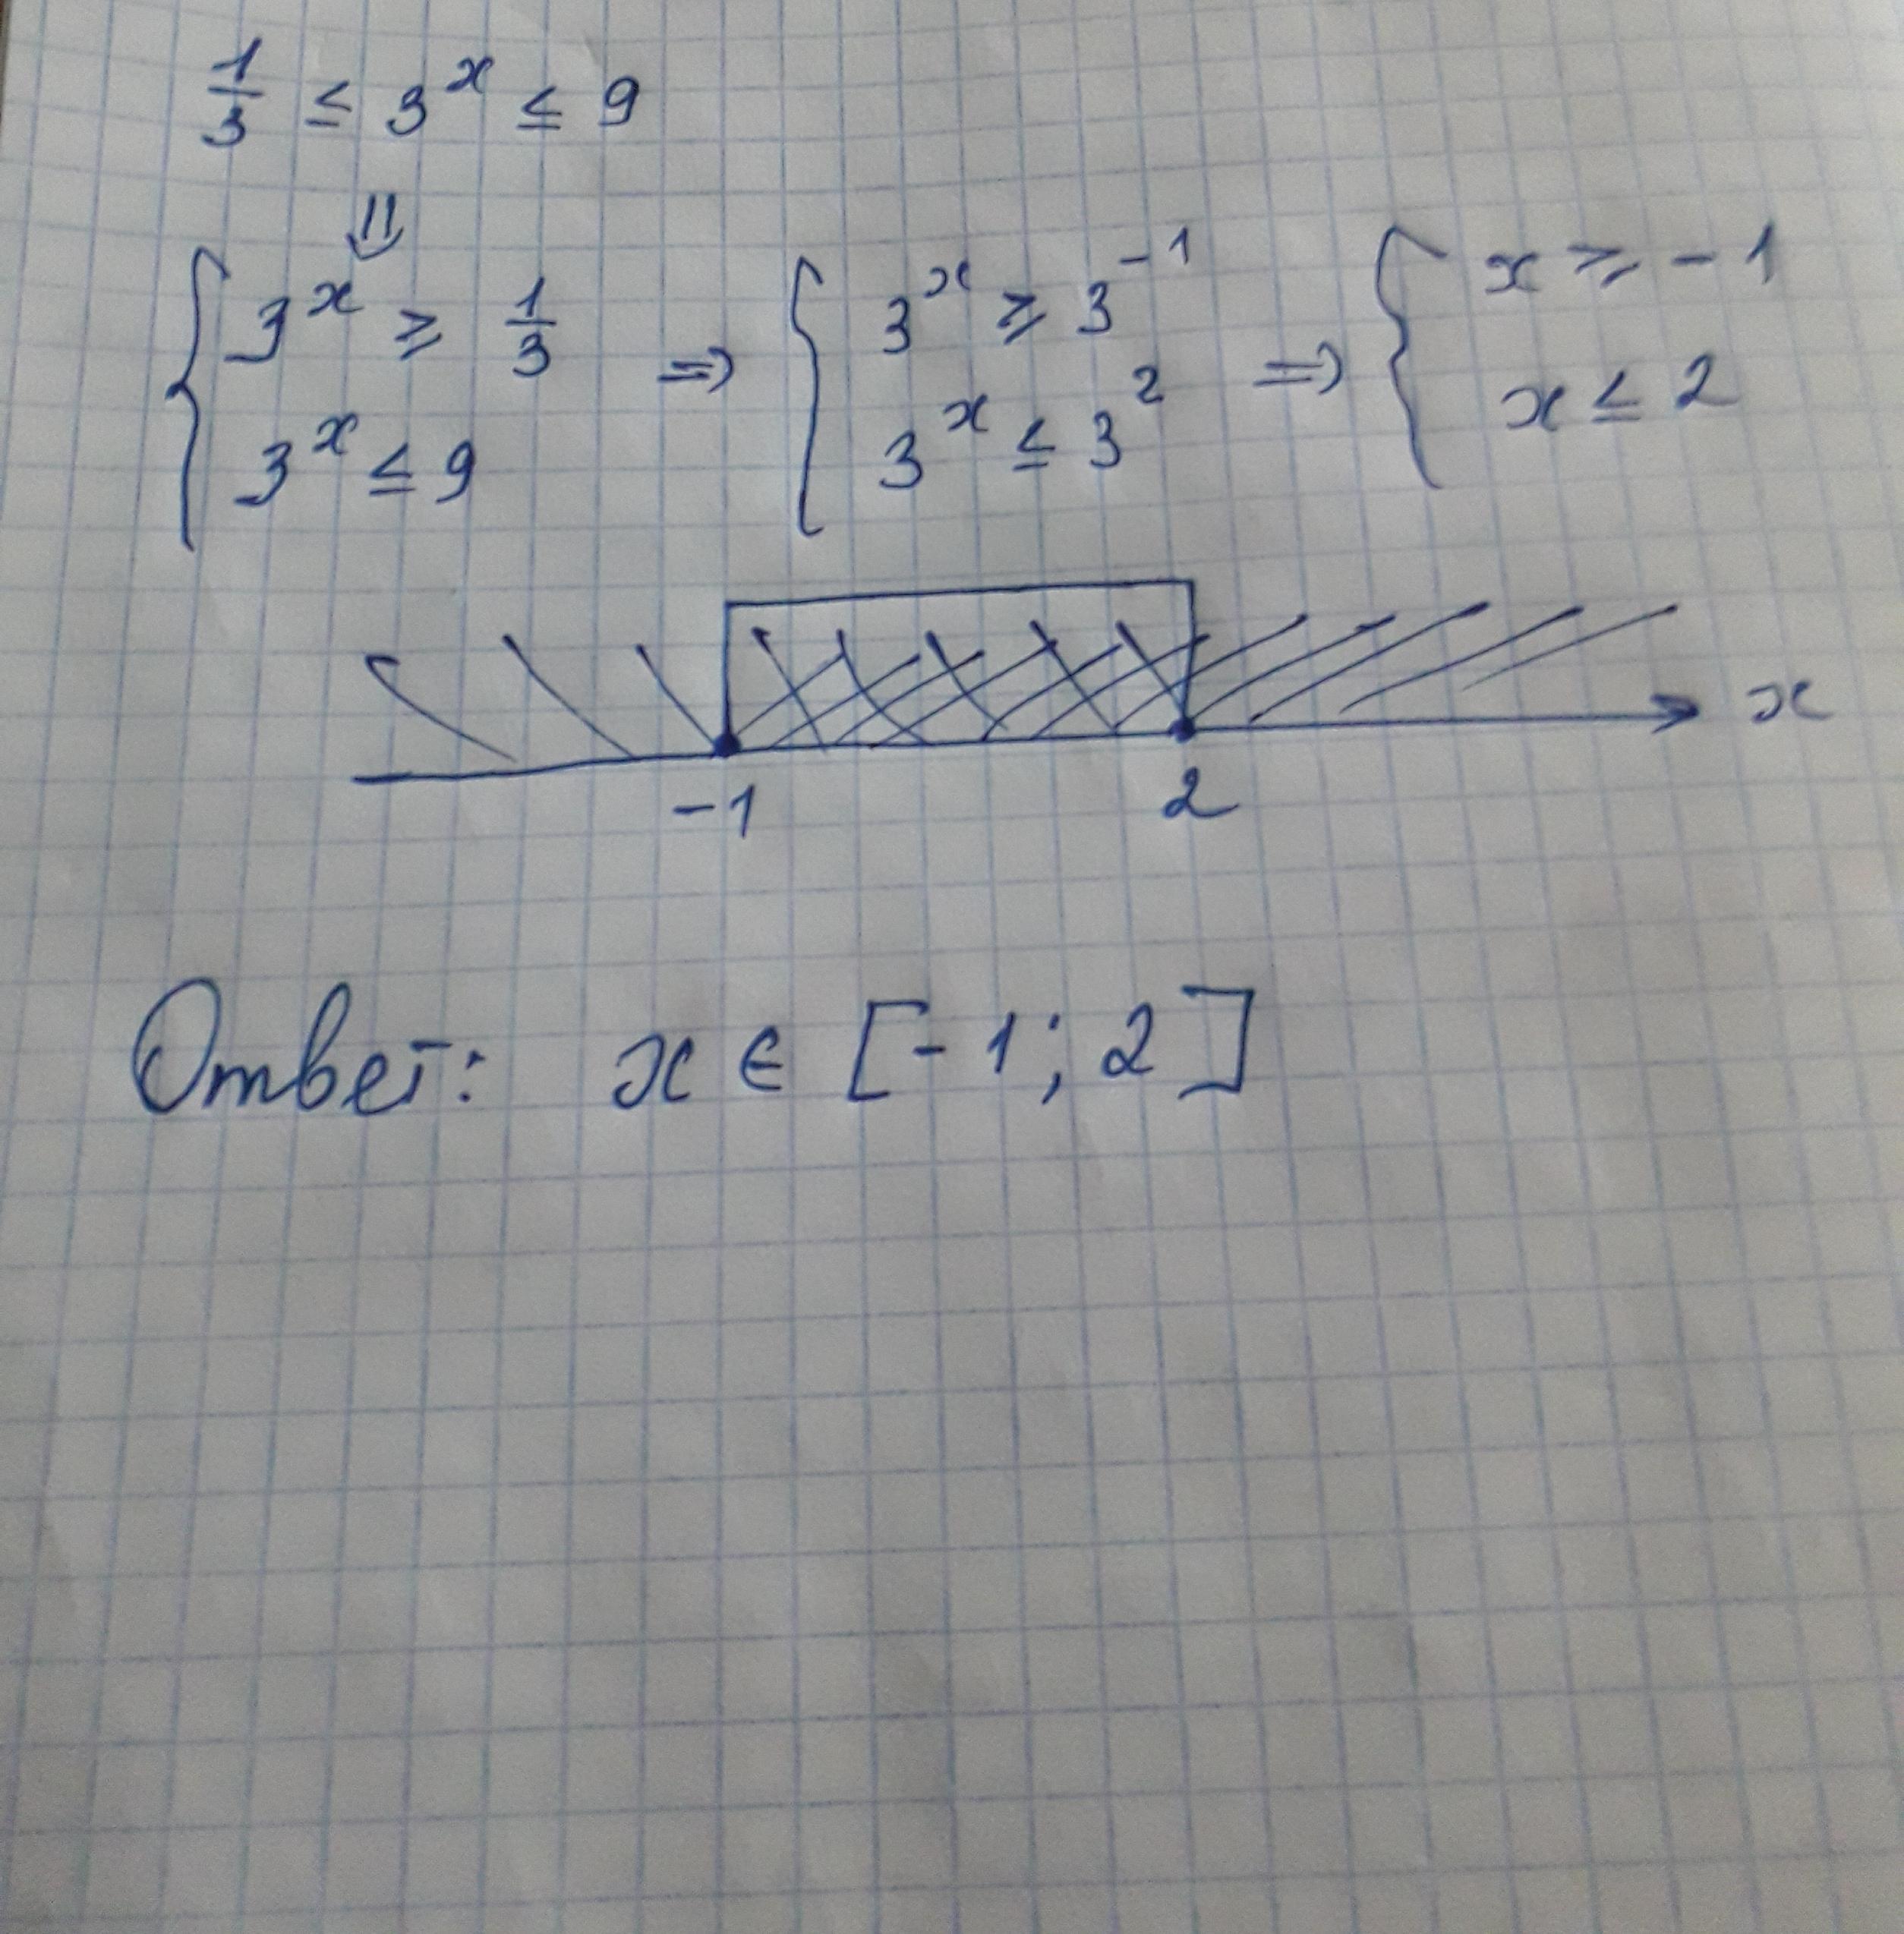 1/3 ≤ 3^x ≤ 9
⇓
{ 3^x ≥ 1/3 ⇒ { 3^x ≥ 3^-1 ⇒ { x ≥ -1
3^x ≤ 9 3^x ≤ 3^2 x ≤ 2
x
-1 2
Ответ: x ∈ [-1; 2]